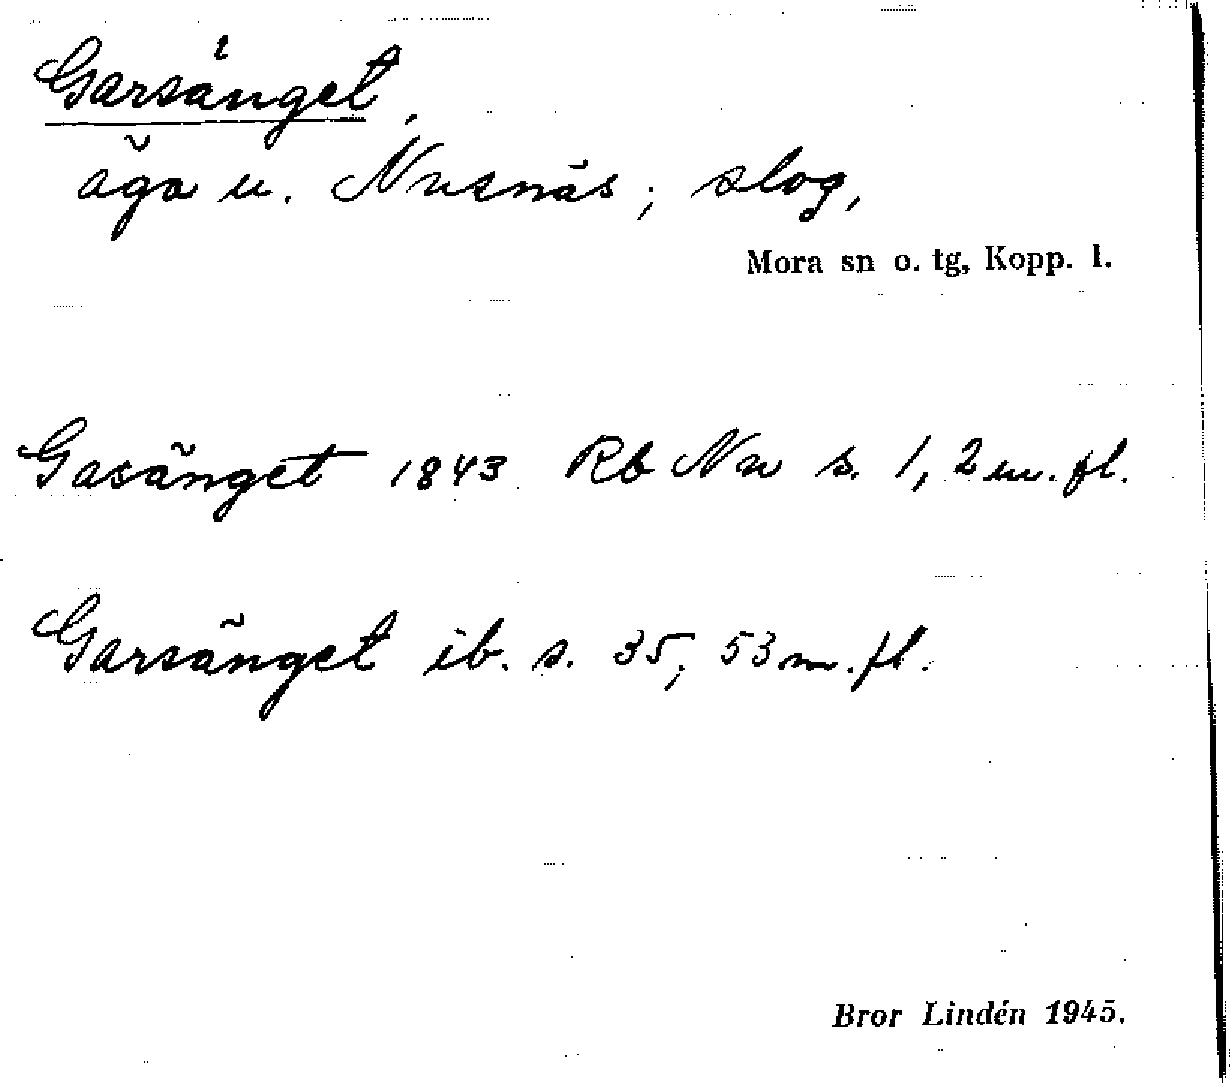 Garsänget,
äga u. Nusnäs; slog,
Mora sn o. tg, Kopp. l.
Gasänget 1843 Rb Nu s. 1, 2 m. fl.
Garsänget ib. s. 35, 53 m. fl.
Bror Lindén 1945.